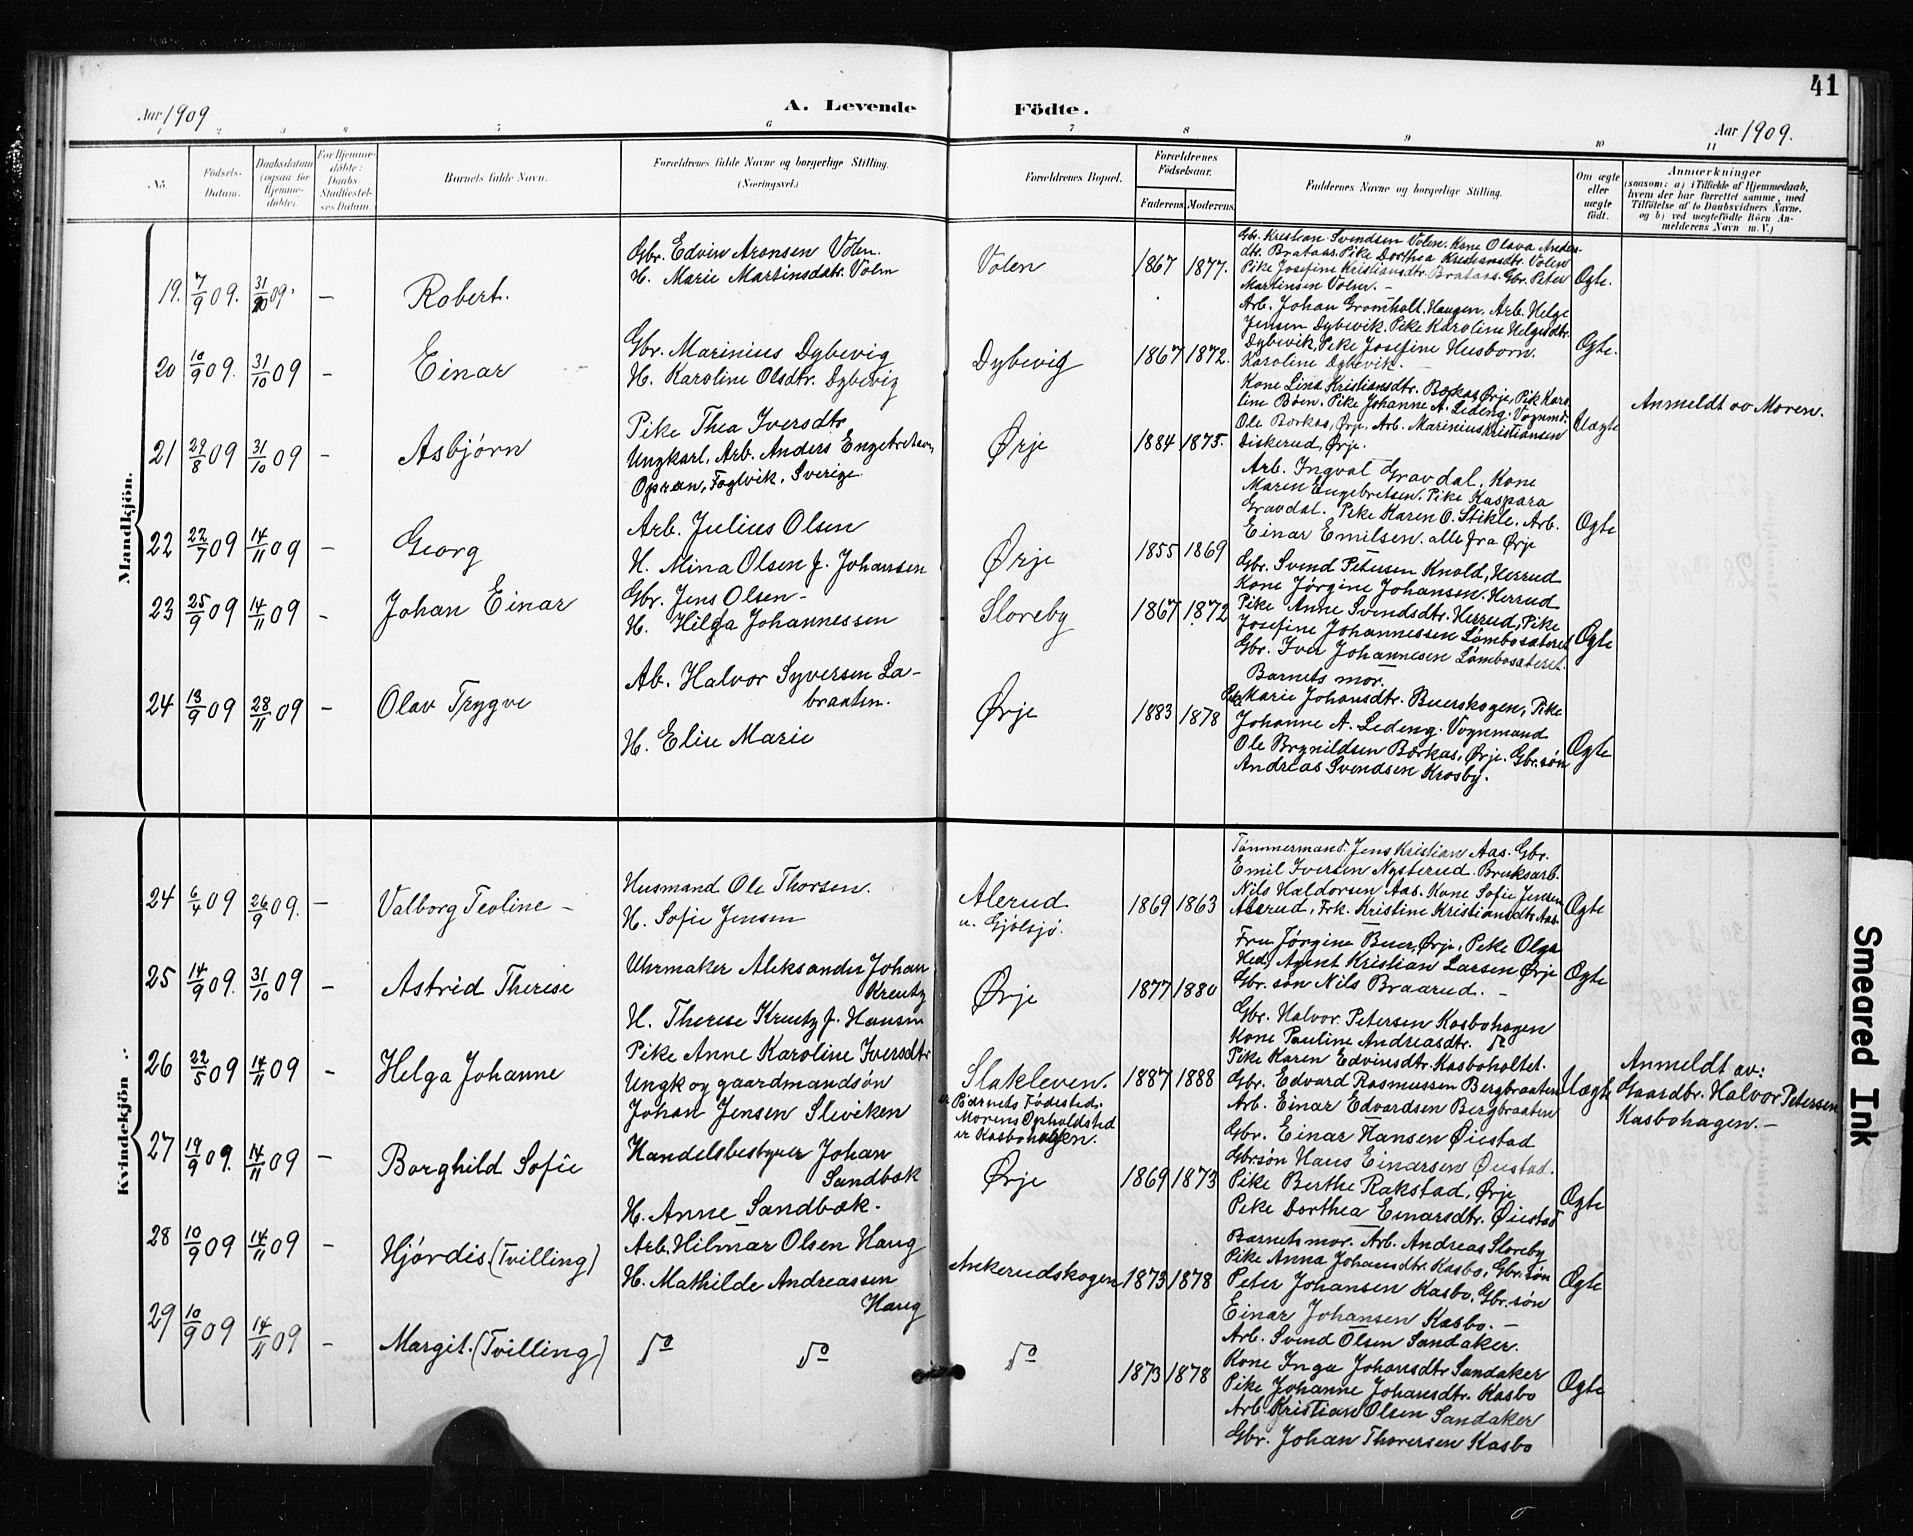 41
A. Levende Födte.
Aar 1909
Aar 1909.
1 2 3 4 5 6 7 8 9 10 11
No.
Födsels-
Datum.
Daabsdatum
(ogsaa for
Hjemme-
döbte).
For Hjemme-
döbte:
Daabs-
Stadfæstel-
ses Datum.
Barnets fulde Navn.
Forældrenes fulde Navne og borgerlige Stilling.
(Næringsvei.)
Forældrenes Bopæl.
Forældrenes
Födselsaar.
Faderens. Moderens.
Faddernes Navne og borgerlige Stilling.
Om ægte
eller
uægte
födt.
Anmærkninger
(saasom: a) i Tilfælde af Hjemmedaab,
hvem der har forrettet samme, med
Tilföielse af to Daabsvidners Navne,
og b) ved uægtefödte Börn An-
melderens Navn m. V.)
Mandkjön.
19. 7/9 09. 31/10 09. — Robert.
Gbr. Edvin Aronsen Volen.
H. Marie Martinsdatr. Volen
Volen 1867 1877.
Gbr. Kristian Svendsen Volen. Kone Olava Anders-
dtr. Brataas. Pike Dorthea Kristiansdtr. Volen
Pike Josefine Kristiansdtr. Brataas. Gbr. Peter
Martinsen Volen. —
Ægte.
20 10/9 09. 31/10 09 — Einar
Gbr. Marinius Dybevig
H. Karoline Olsdtr. Dybevig
Dybevig 1867 1872.
Arb. Johan Gromholt. Haugen, Arb. Helge
Jensen Dybevik. Pike Karoline Helgesdtr.
Dybevik. Pike Josefine Husborn.
Karoline Dybevik. —
Ægte.
21 29/8 09 31/10 09 — Asbjørn
Pike Thea Iversdtr
Ungkarl, Arb. Anders Engebretsen,
Opran, Foglvik, Sverige.
Ørje 1884 1875.
Kone Lina Kristiansdtr. Borkas, Ørje, Pik Karo
line Böen. Pike Johanne A. Lideng. Vognmd.
Ole Borkas, Ørje, Arb. Marinius Kristiansen
Diskerud, Ørje.
Uægte
Anmeldt av Moren.
22 22/7 09 14/11 09 — Georg
Arb. Julius Olsen
H. Mina Olsen f. Johansen
Ørje 1855 1869
Arb. Ingval Gravdal, Kone
Maren Engebretsen. Pike Kaspara
Gravdal. Pike Karen O. Stikle. Arb.
Einar Emilsen. alle fra Ørje
Ægte
23 25/9 09 14/11 09 — Johan Einar
Gbr. Jens Olsen —
H. Hilga Johannessen
Sloreby 1867 1872
Gbr. Svend Petersen Knold, Herrud
Kone Jørgine Johansen. Herrud
Pike Anne Svendsdtr. Herrud, Pike
Josefine Johannessen Lømbosæteret
Gbr. Iver Johannesen Lømbosæteret.
Ægte
24 13/9 09 28/11 09 — Olav Trygve
Ab. Halvor Syversen La-
braaten.
H. Elin Marie
Ørje 1883 1878
Barnets mor.
Pike Marie Johansdtr. Buerskogen, Pike
Johanne A. Lideng. Vognmand
Ole Brynildsen Borkas, Ørje. Gbr.søn
Andreas Svendsen Krosby.
Ægte
Kvindekjön
24 6/4 09 26/9 09. — Valborg Teoline —
Husmand Ole Thorsen.
H. Sofie Jensen
Alerud
u. Gjølsjø. 1869 1863
Tømmermand. Jens Kristian Aas. Gbr.
Emil Iversen Nysterud. Bruksarb.
Nils Haldorsen Aas. Kone Sofie Jensen
Alerud, Frk. Kristine Kristiansdtr. Aas.
Ægte
25 14/9 09. 31/10 09 — Astrid Therese
Uhrmaker Aleksander Johan
Kreutz
H. Therese Kreutz f. Hansen
Ørje 1877 1880
Fru Jørgine Buer, Ørje, Pike Olga
Hed, Agent Kristian Larsen Ørje
Gbr. søn Nils Braarud. —
Ægte
26 22/5 09 14/11 09 — Helga Johanne
Pike Anne Karoline Iversdtr
Ungk og gaardmandsøn
Johan Jensen Sleviken
Slakleven.
er Barnets Fødested.
Morens Opholdsted
er Kasbohagen.
1887 1888
Gbr. Halvor Petersen Kasbohagen
Kone Pauline Andreasdtr. do
Pike Karen Edvinsdtr. Kasboholtet.
Gbr. Edvard Rasmussen Bergbraaten
Arb. Einar Edvardsen Bergbraaten
Uægte
Anmeldt av:
Gaardbr. Halvor Petersen
Kasbohagen. —
27 19/9 09. 14/11 09 — Borghild Sofie
Handelsbestyrer Johan
Sandbæk
H. Anne Sandbæk.
Ørje 1869 1873
Gbr. Einar Hansen Øiestad
Gbr.søn Hans Einarsen Øiestad.
Pike Berthe Rakstad, Ørje
Pike Dorthea Einarsdtr. Øiestad
Ægte
28 10/9 09 14/11 09 — Hjørdis. (Tvilling)
Arb. Hilmar Olsen Haug
H. Mathilde Andreassen
Haug
Ankerudskogen 1873 1878
Barnets mor. Arb. Andreas Sloreby
Pike Anna Johansdtr. Kasbo, Gbr.søn
Peter Johansen Kasbo, Gbr.søn
Einar Johansen Kasbo. —
Ægte
29 10/9 09 14/11 09 — Margit. (Tvilling)
do do do
1873 1878
Arb. Svend Olsen Sandaker.
Kone Inga Johansdtr Sandaker
Pike Johanne Johansdtr. Kasbo
Arb. Kristian Olsen Sandaker
Gbr. Johan Thoversen Kasbo
Ægte
Smeared Ink